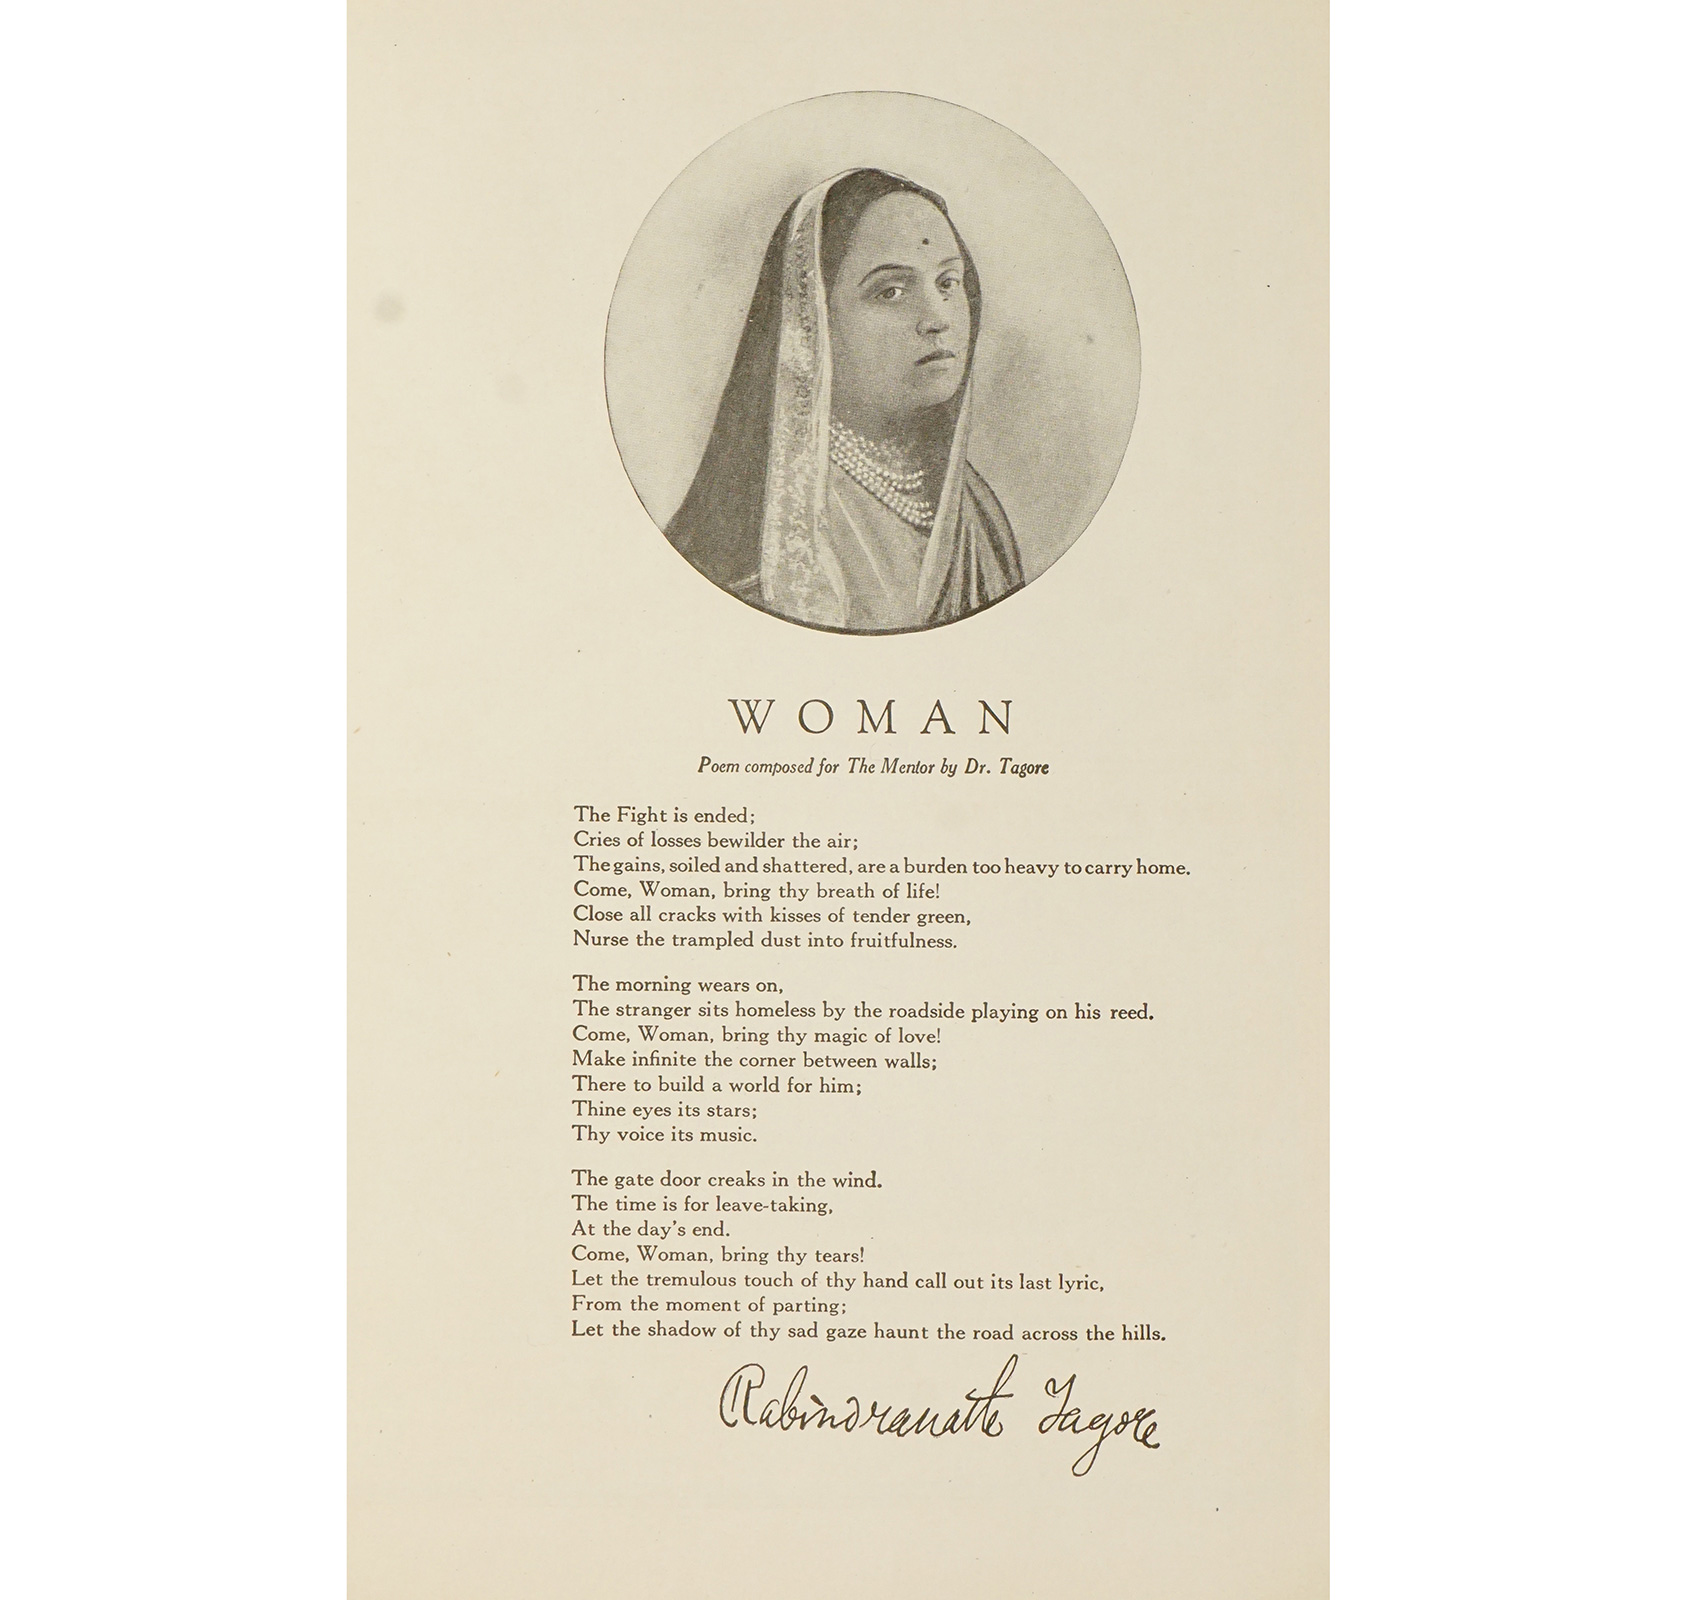 WOMAN
Poem composed for The Mentor by Dr. Tagore
The Fight is ended;
Cries of losses bewilder the air;
The gains, soiled and shattered, are a burden too heavy to carry home.
Come, Woman, bring thy breath of life!
Close all cracks with kisses of tender green,
Nurse the trampled dust into fruitfulness.
The morning wears on,
The stranger sits homeless by the roadside playing on his reed.
Come, Woman, bring thy magic of love!
Make infinite the corner between walls;
There to build a world for him;
Thine eyes its stars;
Thy voice its music.
The gate door creaks in the wind.
The time is for leave-taking,
At the day's end.
Come, Woman, bring thy tears!
Let the tremulous touch of thy hand call out its last lyric,
From the moment of parting;
Let the shadow of thy sad gaze haunt the road across the hills.
Rabindranath Tagore